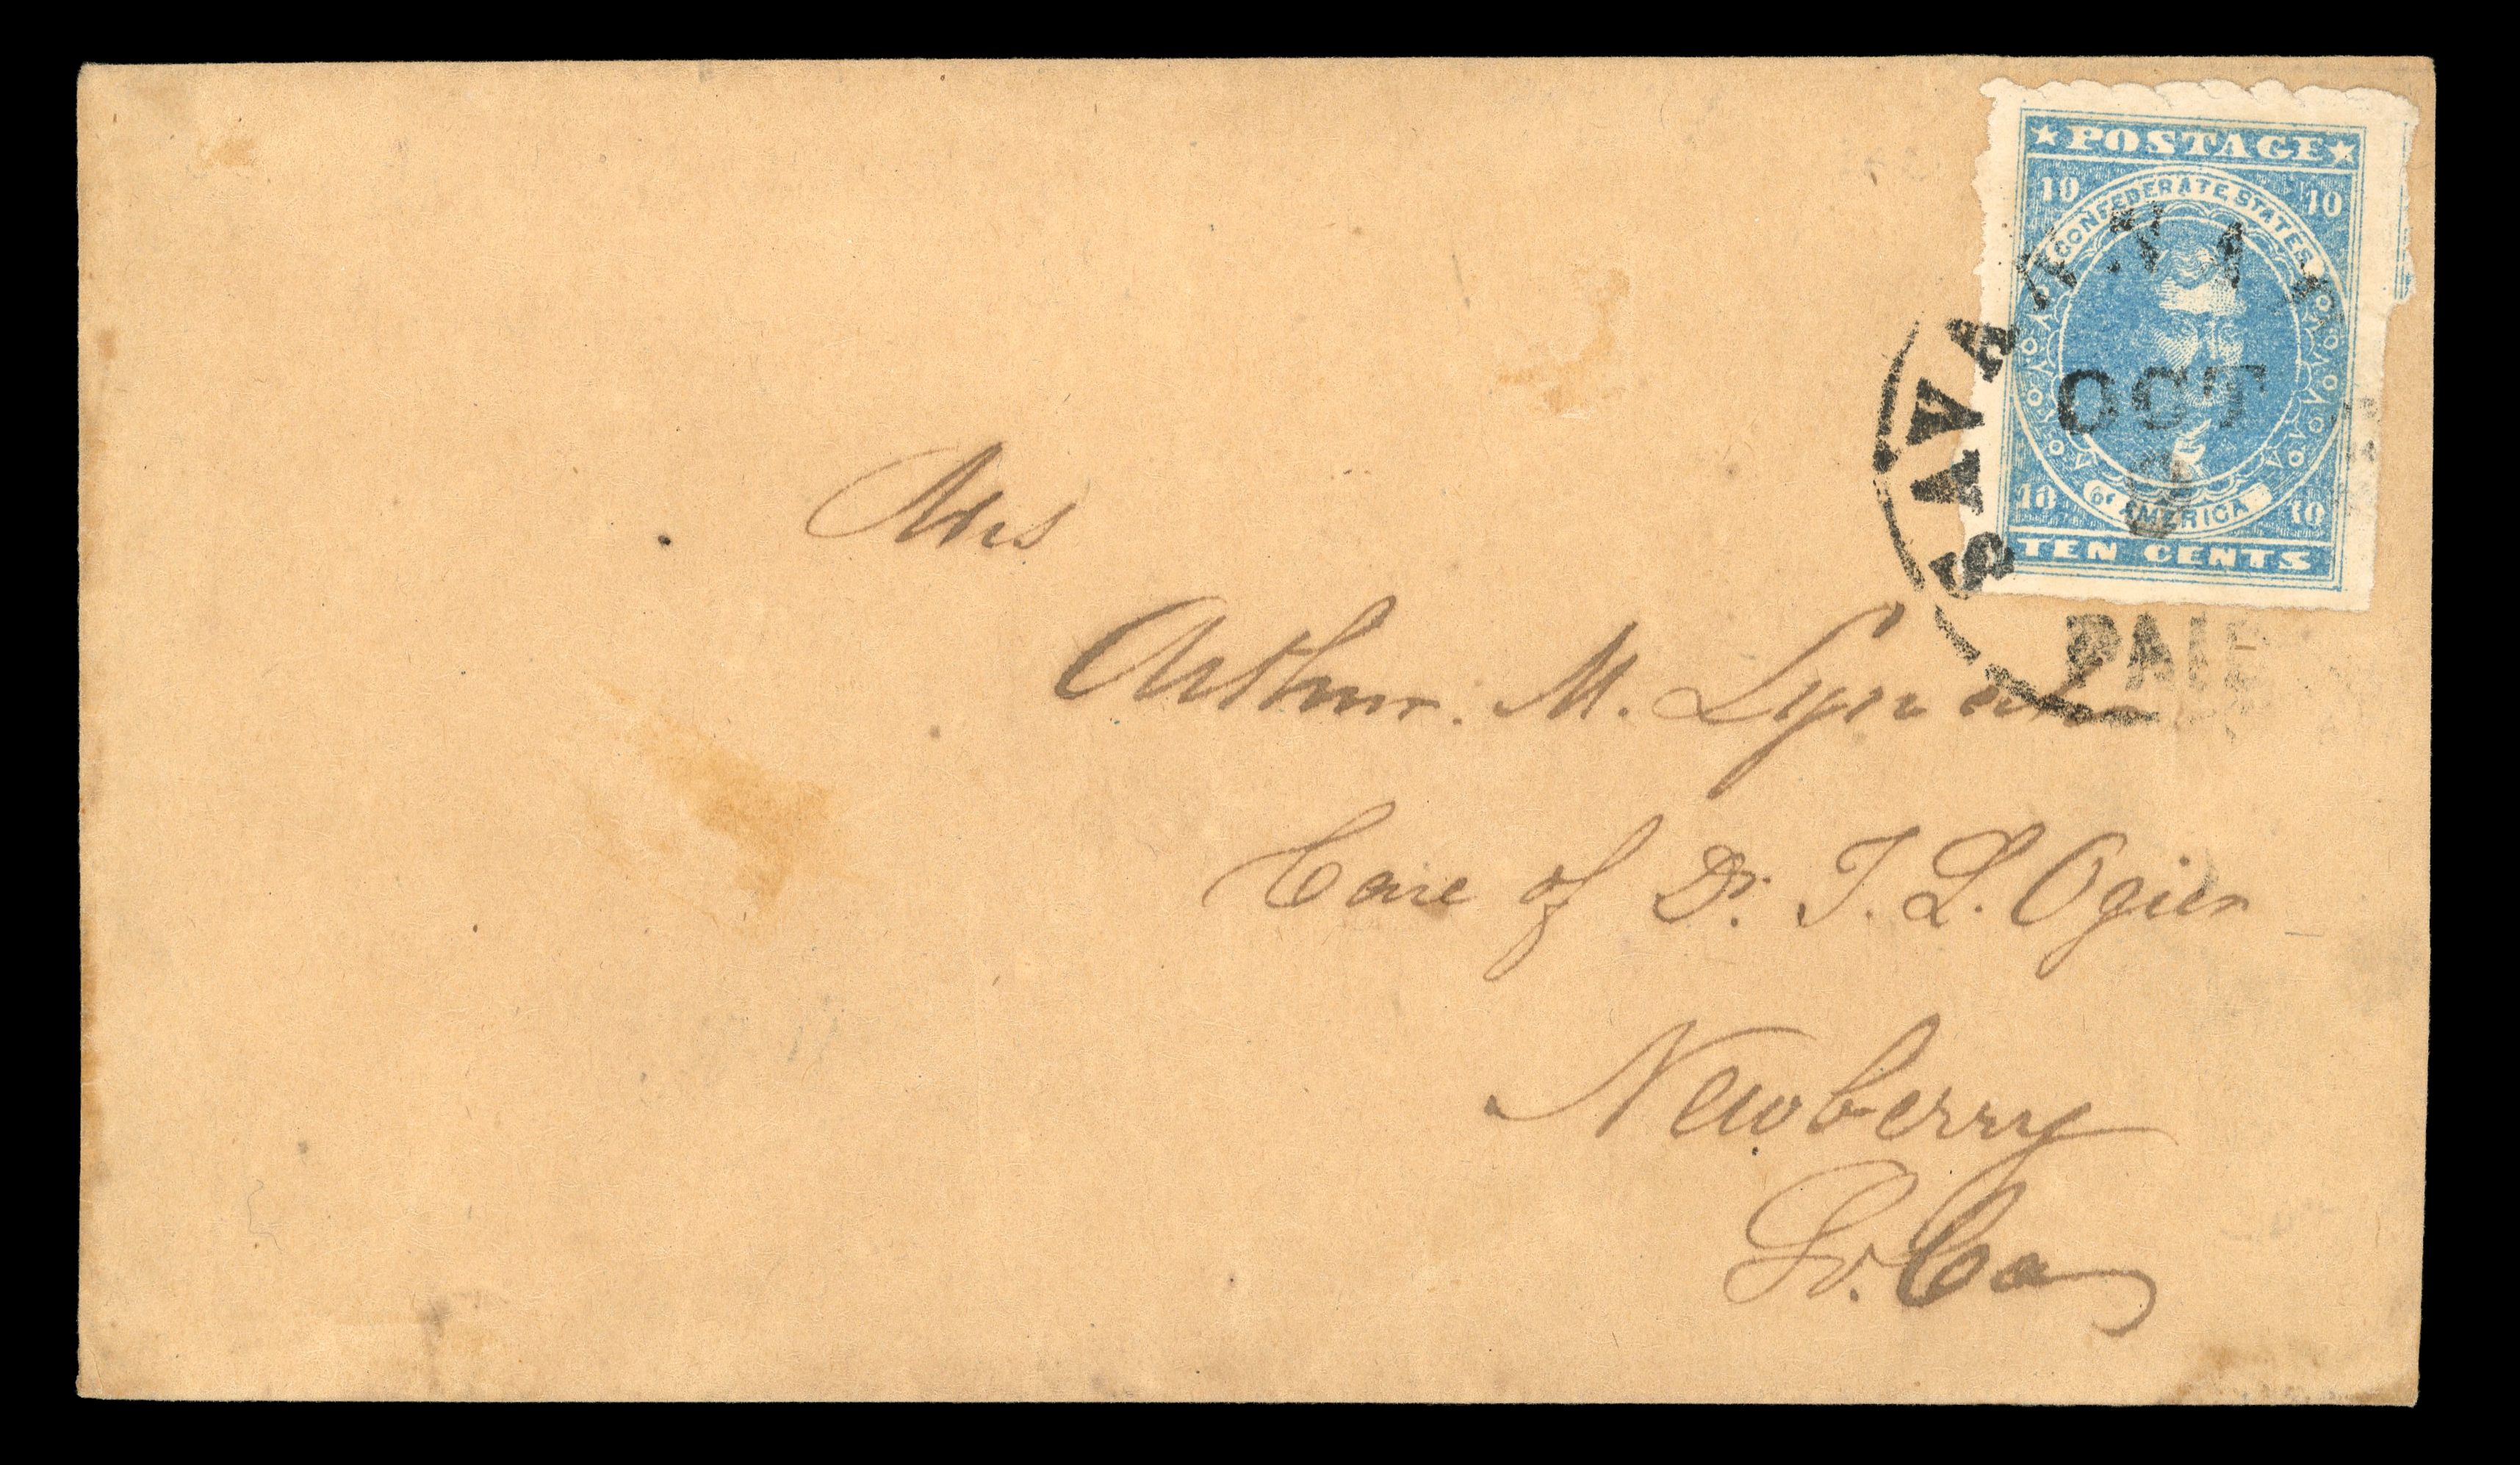 ★ POSTAGE ★
10 10
CONFEDERATE STATES
OCT
10 10
OF AMERICA
TEN CENTS
PAID
Mrs
Arthur. M. Lynah
Care of Dr. T. L. Ogier
Newberry
So. Ca